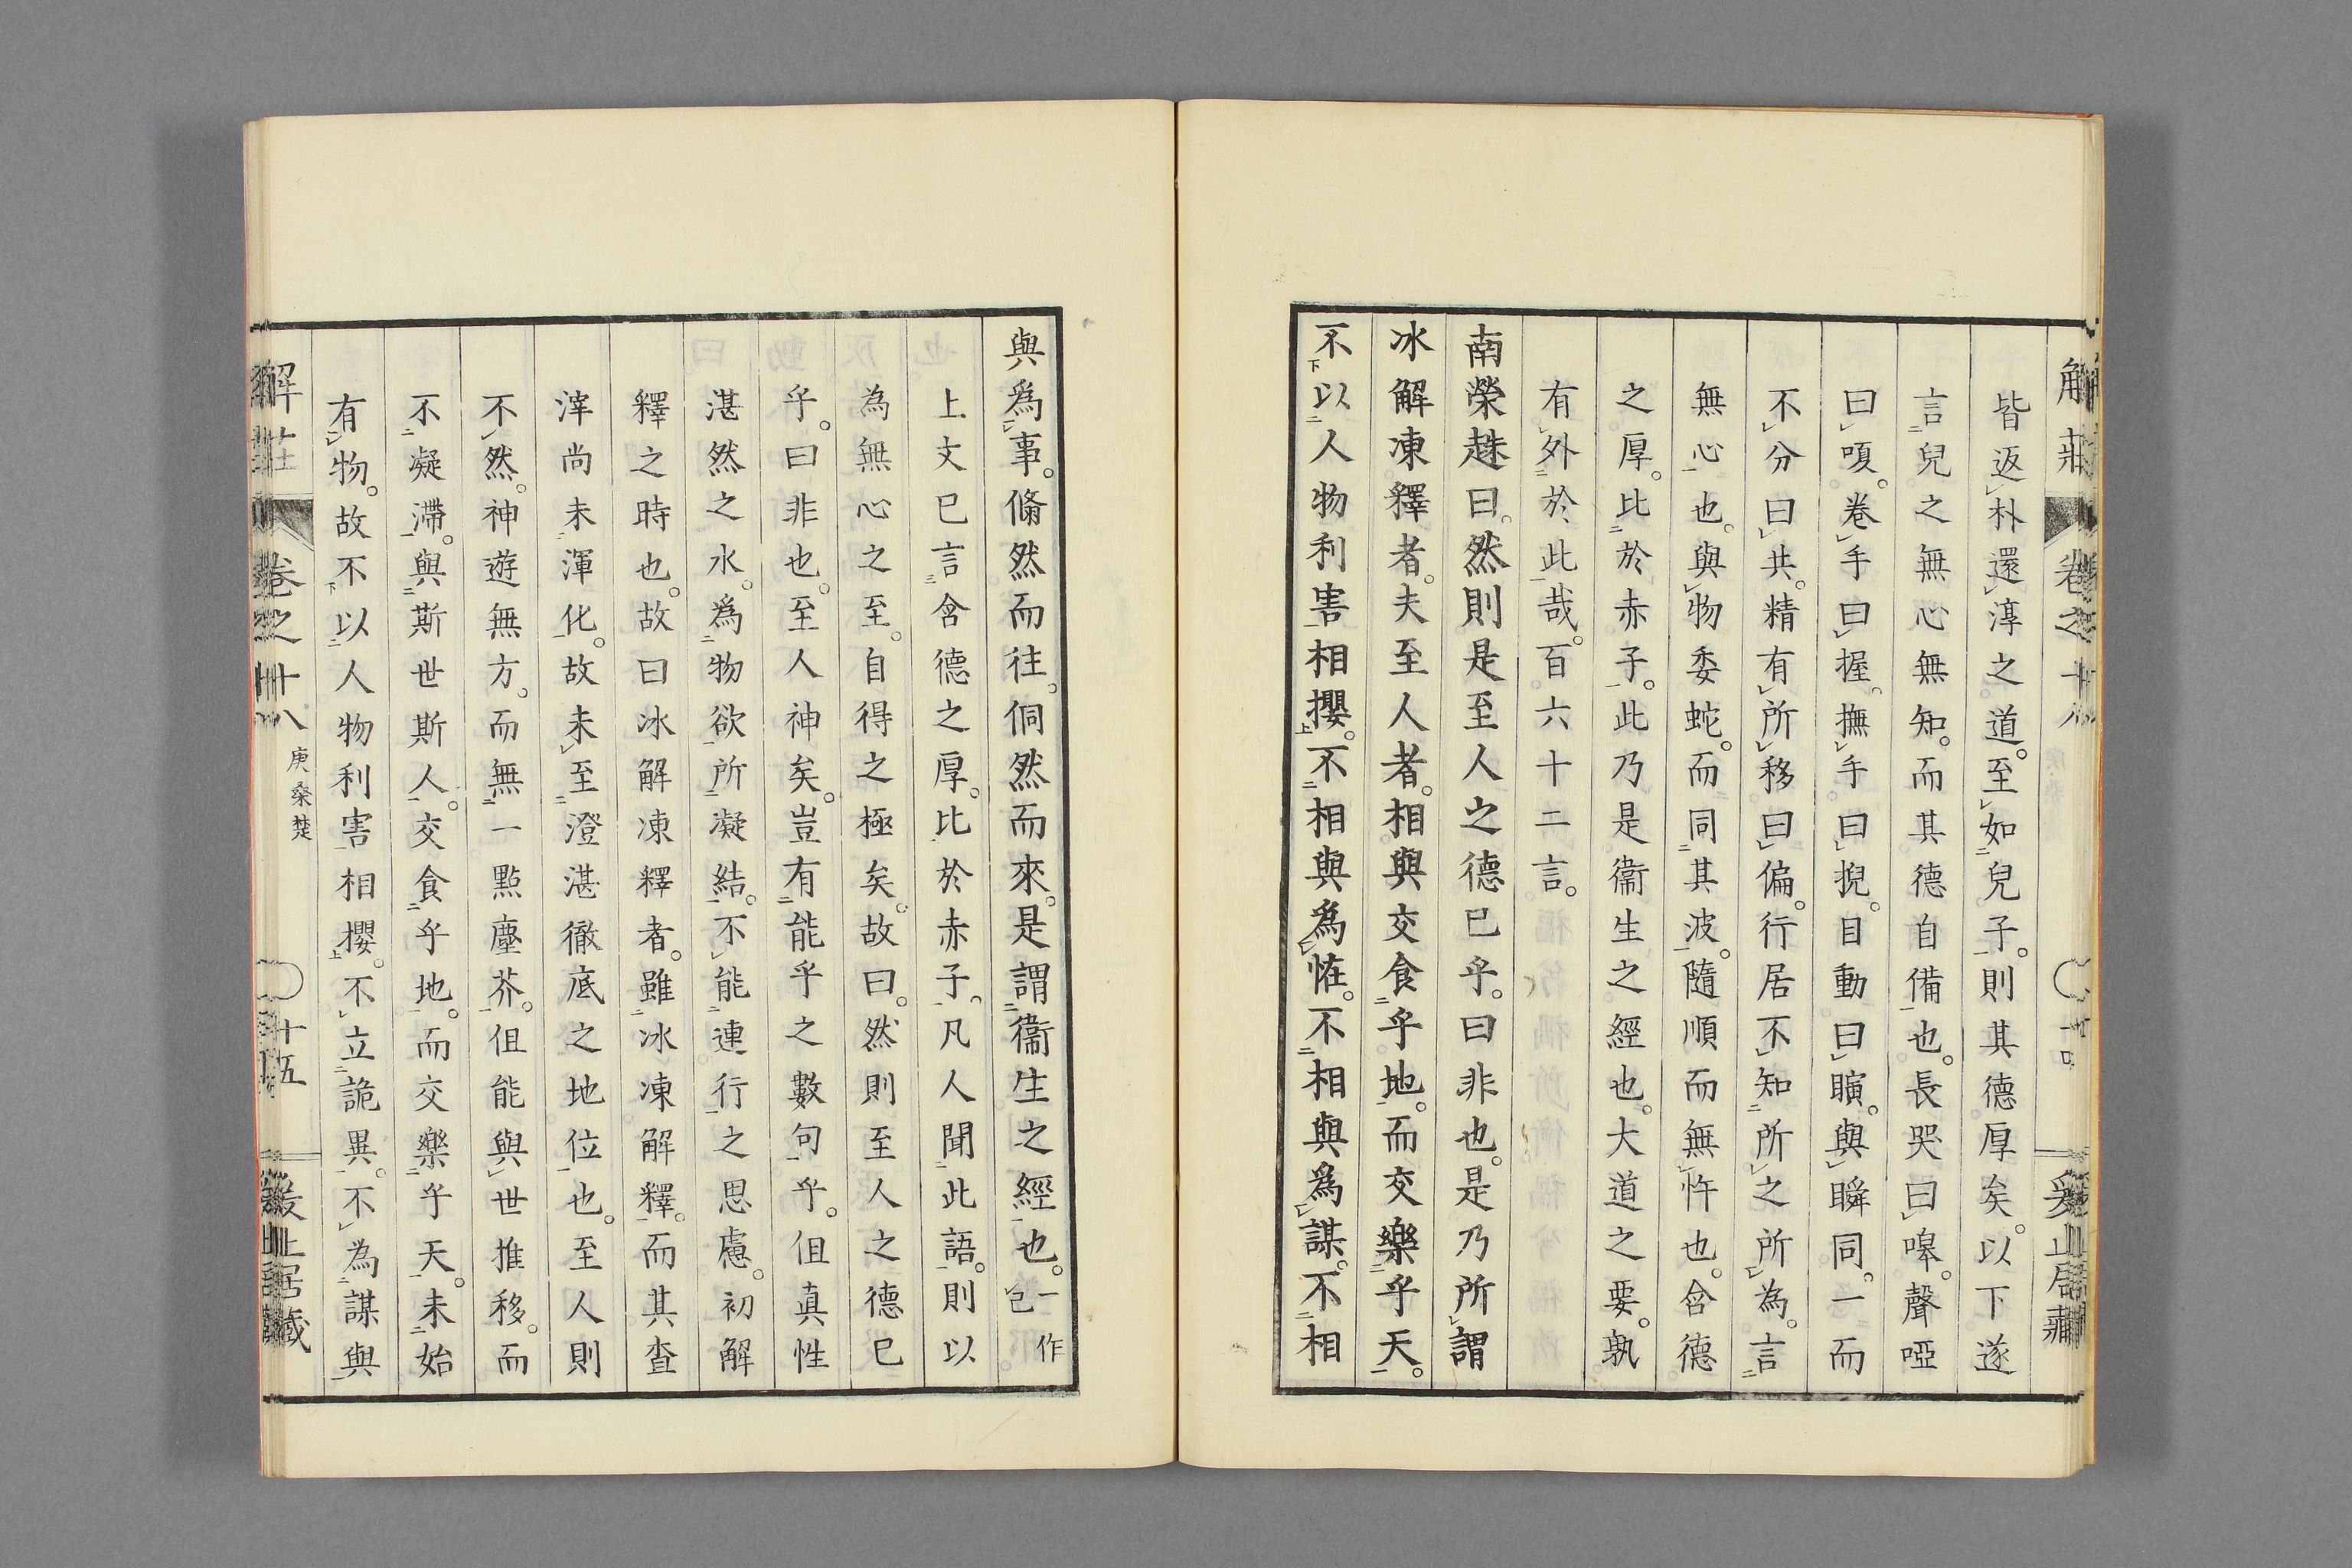 皆返朴還淳之道。至如兒子。則其德厚矣。以下遂
言兒之無心無知。而其德自備也。長哭曰嗥。聲啞
曰嗄。卷手曰握。撫手曰掜。目動曰瞚。與瞬同。一而
不分曰共。精有所移曰偏。行居不知所之所為。言
無心也。與物委蛇。而同其波。隨順而無忤也。含德
之厚。比於赤子。此乃是衞生之經也。大道之要。孰
有外於此哉。百六十二言。
南榮趎曰。然則是至人之德已乎。曰非也。是乃所謂
冰解凍釋者。夫至人者。相與交食乎地。而交樂乎天。
不以人物利害相攖。不相與爲恠。不相與爲謀。不相
與爲事。翛然而往。侗然而來。是謂衞生之經也。一作
已
上文已言含德之厚。比於赤子。凡人聞此語。則以
為無心之至。自得之極矣。故曰。然則至人之德已
乎。曰非也。至人神矣。豈有能乎之數句乎。但真性
湛然之水。爲物欲所凝結。不能連行之思慮。初解
釋之時也。故曰冰解凍釋者。雖冰凍解釋。而其查
滓尚未渾化。故未至澄湛徹底之地位也。至人則
不然。神遊無方。而無一點塵芥。但能與世推移。而
不凝滯。與斯世斯人。交食乎地。而交樂乎天。未始
有物。故不以人物利害相攖。不立詭異。不為謀與
解莊
卷之十八
庚桑楚
十五